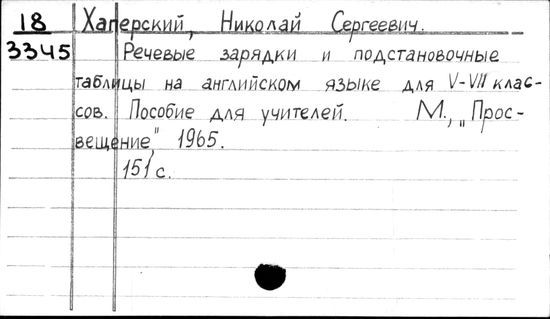 18 Хаперский, Николай Сергеевич.
3345 Речевые зарядки и подстановочные
таблицы на английском языке для V-VII клас-
сов. Пособие для учителей. М., „Прос-
вещение", 1965.
151 с.